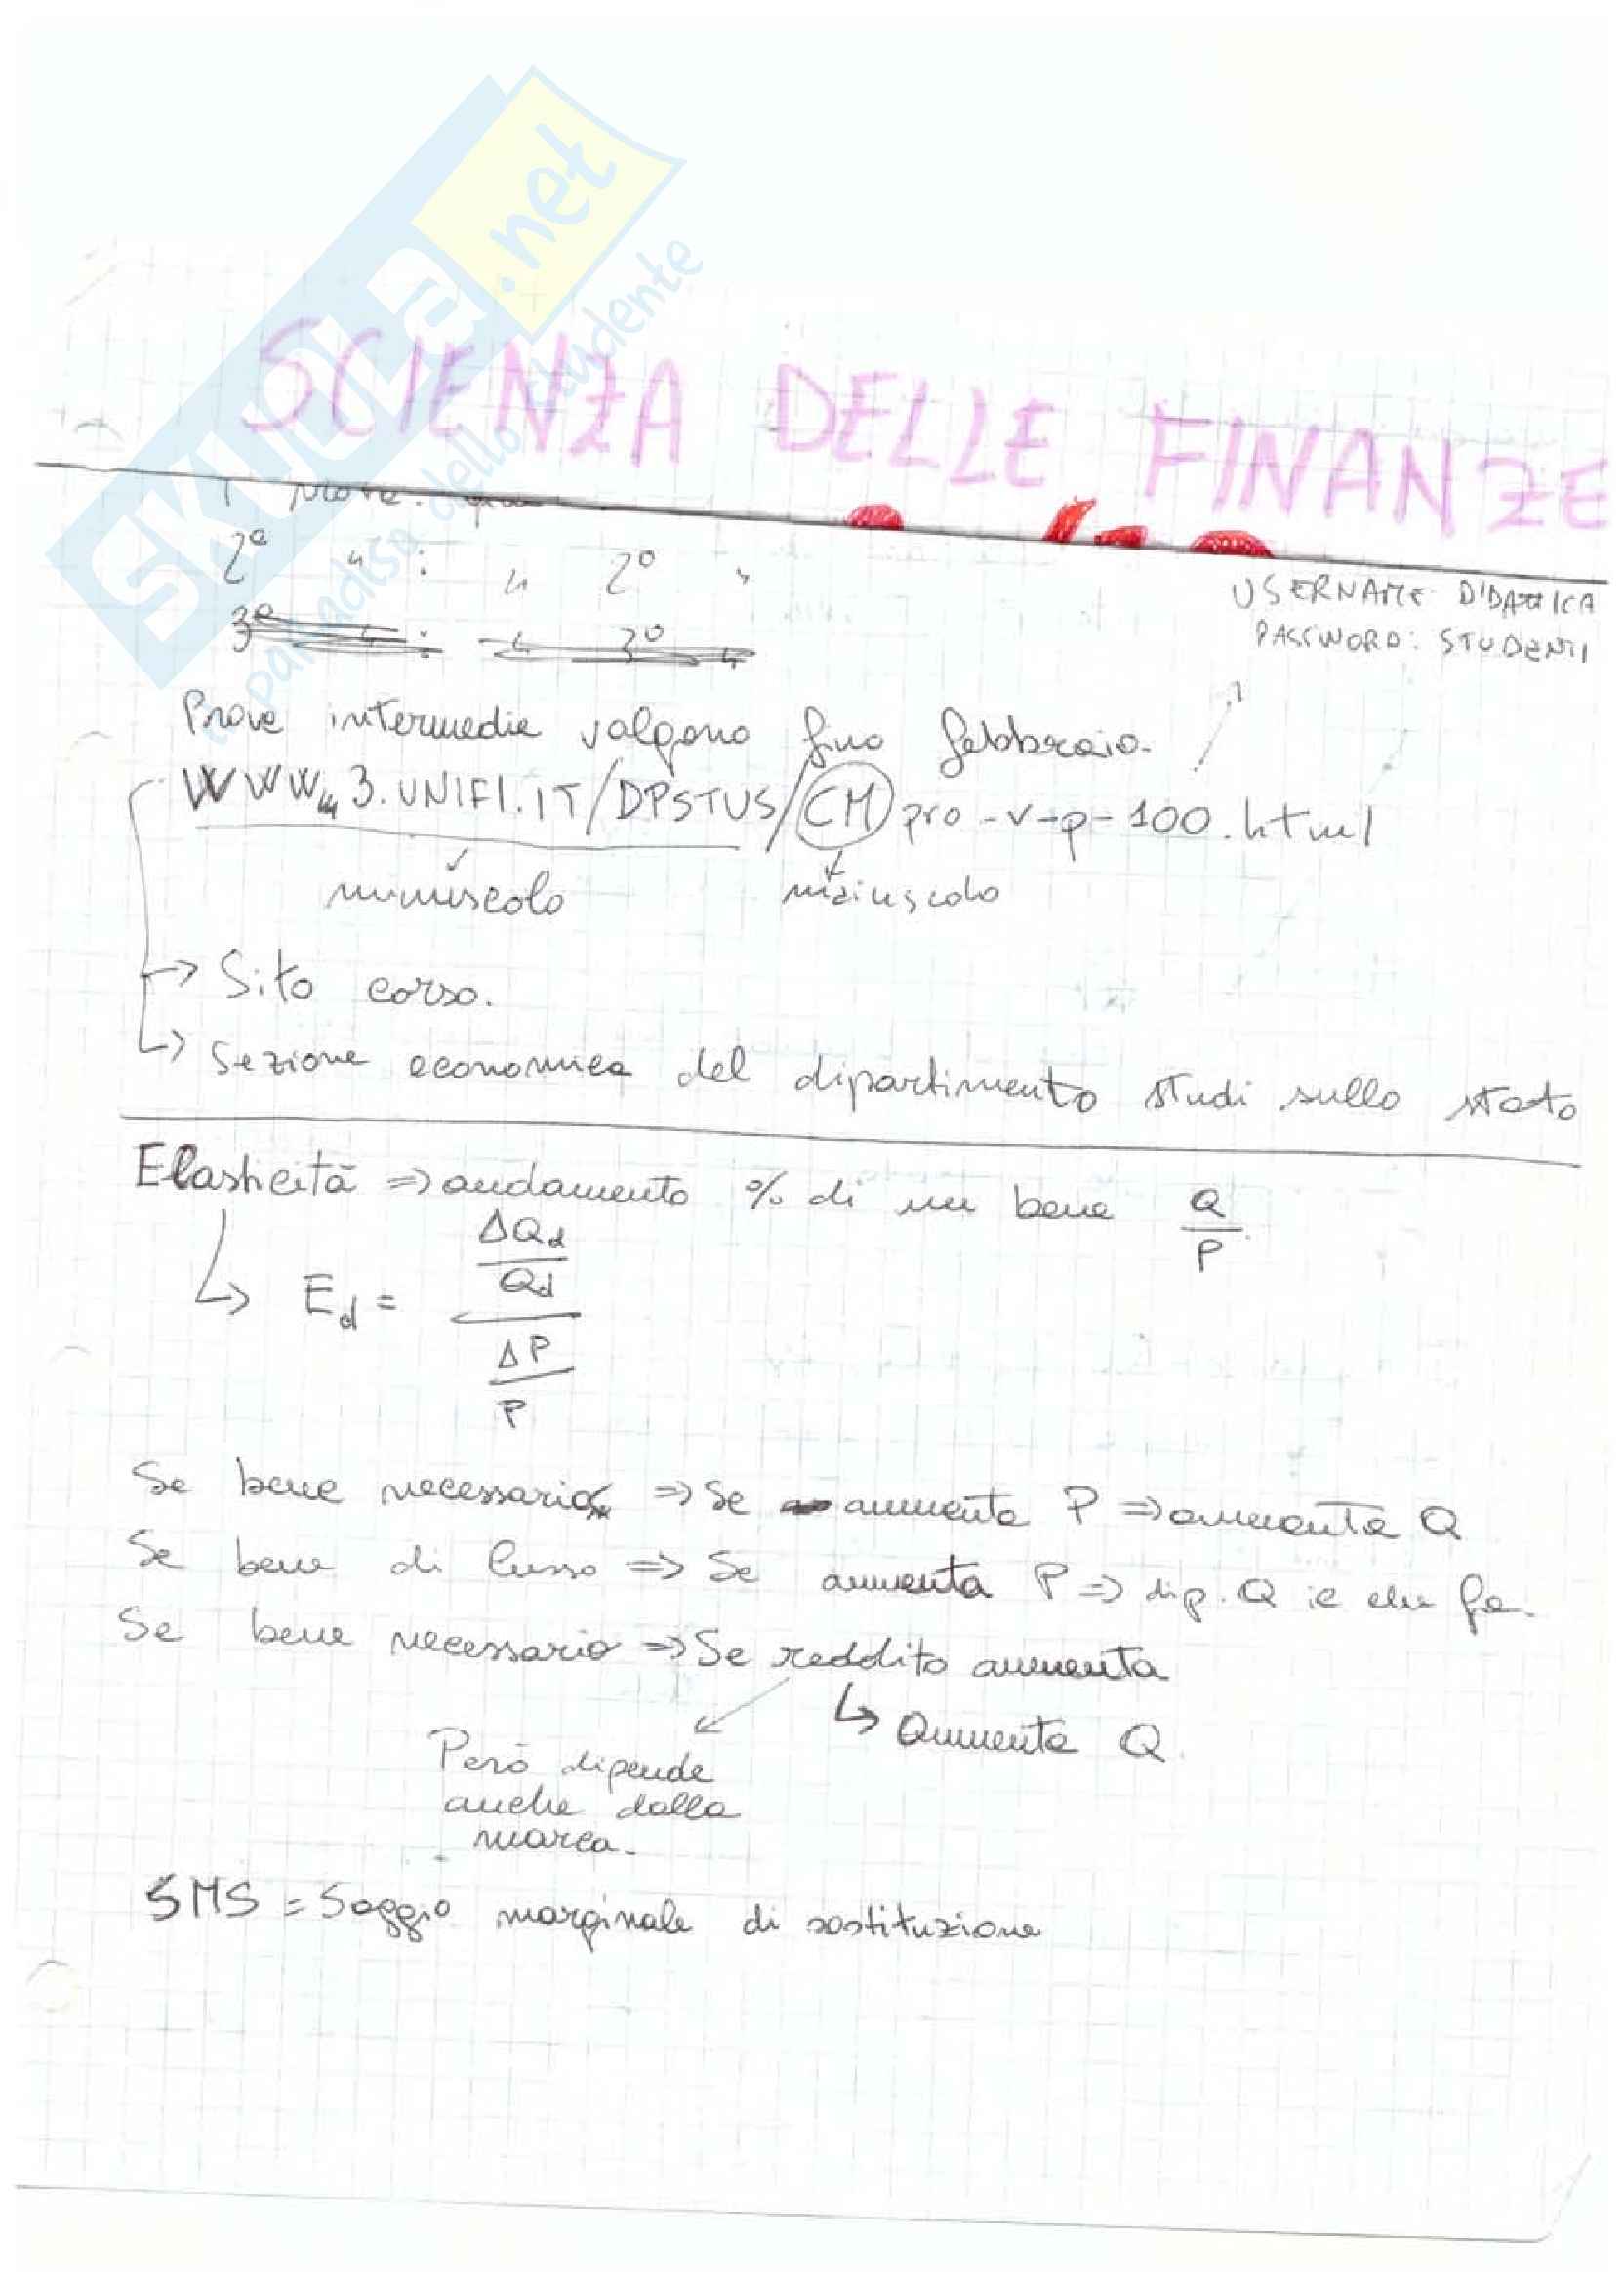 SKUOLA.net
il paradiso dello studente
SCIENZA DELLE FINANZE
2ª " : " 2º "
3ª " : " 3º "
USERNAME: DIDATTICA
PASSWORD: STUDENTI
Prove intermedie valgono fino febbraio.
WWW 3.UNIFI.IT/DPSTUS/CM pro-v-p-100.html
minuscolo maiuscolo
→ Sito corso.
↳ Sezione economica del dipartimento studi sullo stato
Elasticità ⇒ andamento % di un bene Q/P
↳ Ed = (ΔQd/Qd)/(ΔP/P)
Se bene necessario ⇒ Se aumenta P ⇒ aumenta Q
Se bene di lusso ⇒ Se aumenta P ⇒ dip. Q che fa.
Se bene necessario ⇒ Se reddito aumenta
↳ Aumenta Q.
Però dipende
anche dalla
marca.
SMS = Saggio marginale di sostituzione